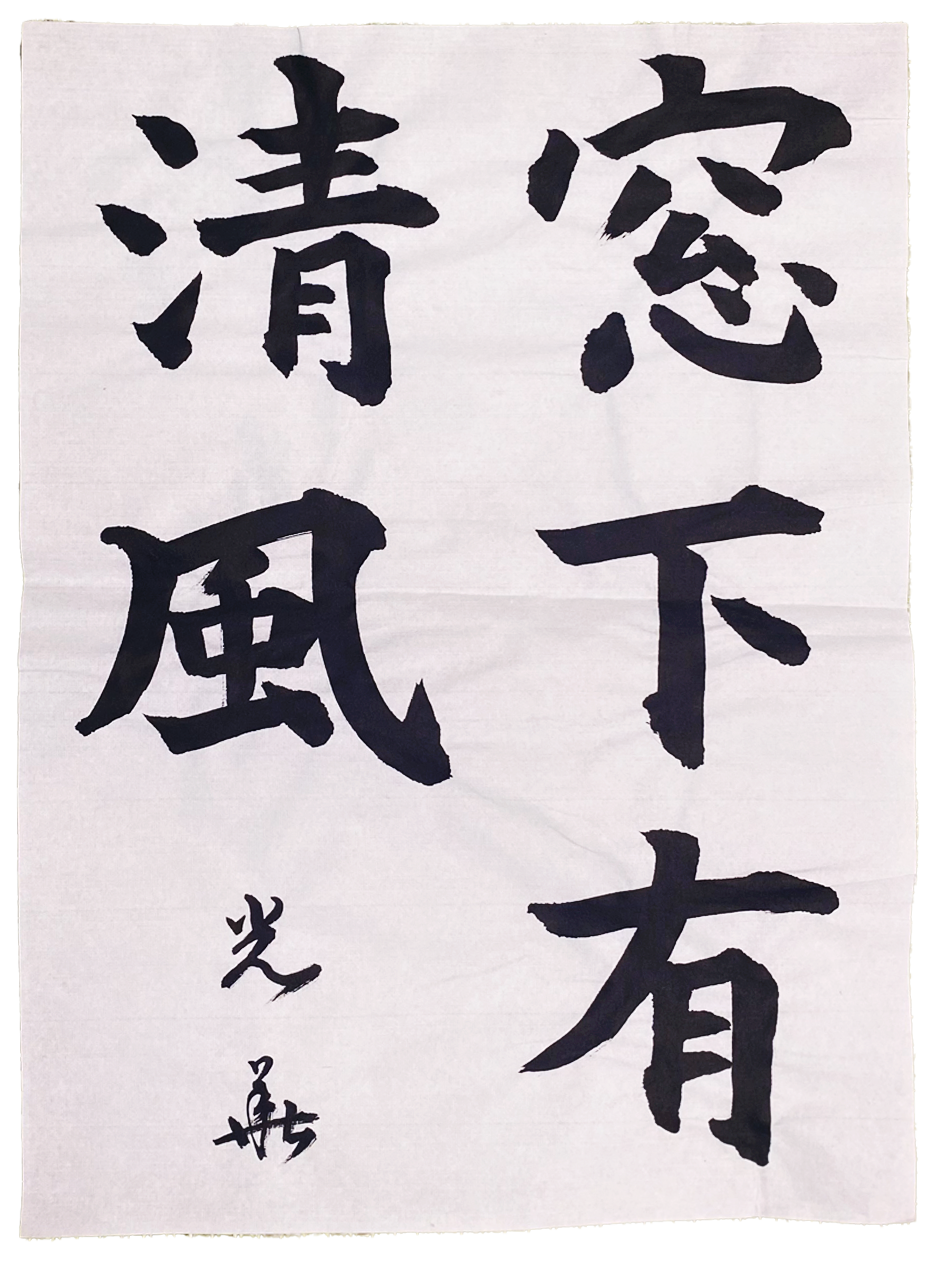 窓下有
清風
光